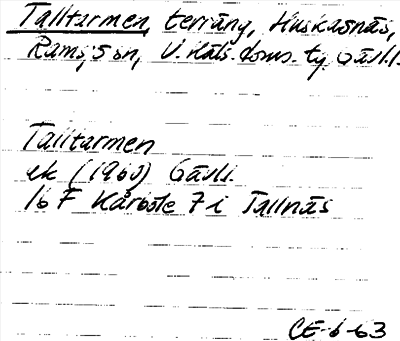 Talltarmen, terräng, Huskasnäs,
Ramsjö sn, V. Häls. doms. tg, Gävl.l.
Talltarmen
ek (1960) Gävl.
16 F Kårböle 7 i Tallnäs
CE-6-63